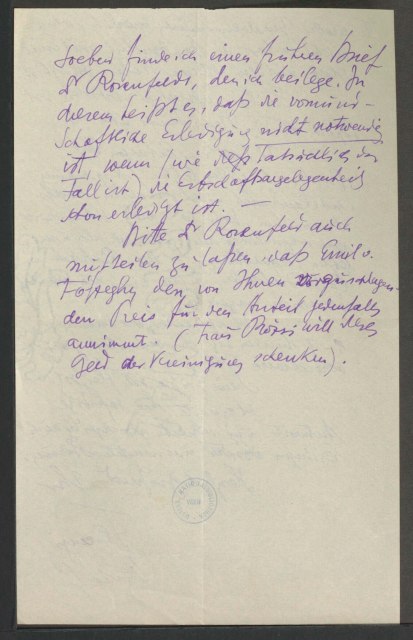 Soeben finde ich einen frühern Brief
Dr Rosenfelds, den ich beilege. In
diesem heißt es, daß die vormund-
schaftliche Erledigung nicht notwendig
ist, wenn (wie dies tatsächlich der
Fall ist) die Erbschaftsangelegenheit
schon erledigt ist. —
Bitte Dr Rosenfeld auch
mitteilen zu lassen, daß Emil v.
den von Ihnen vorzuschlagen-
den Preis für den Anteil jedenfalls
annimmt. (Frau will dieses
Geld der Vereinigung schenken).
WIEN